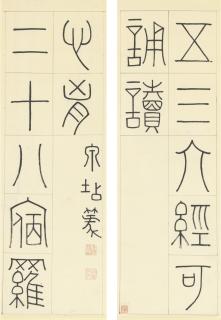 五三六經可
誦讀
二十八宿羅
心胸
坫篆